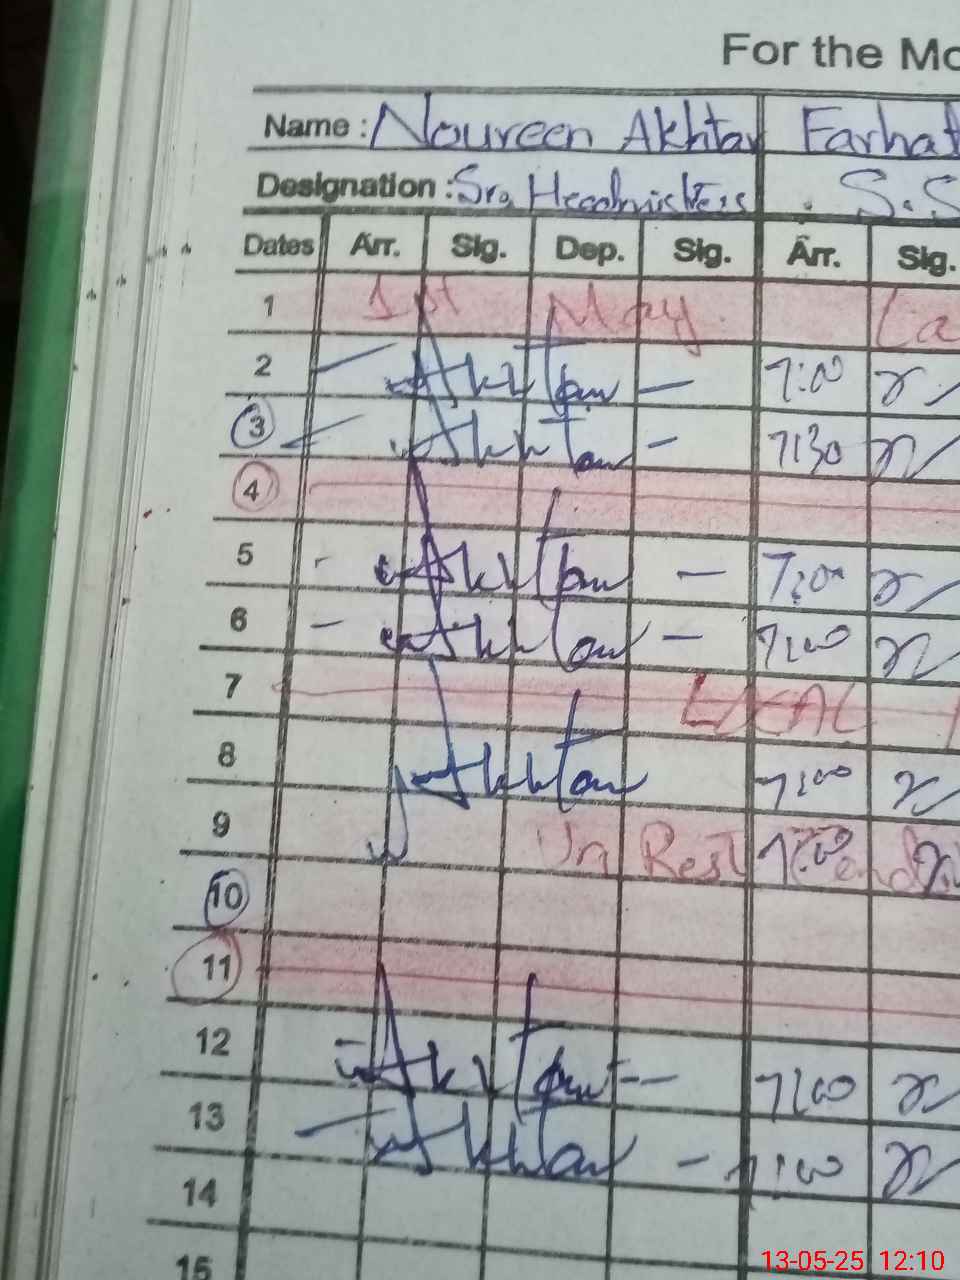 For the Mo
Name : Noureen Akhtar Farhat
Designation : Sr. Headmistress S.S
Dates Arr. Sig. Dep. Sig. Arr. Sig.
1 1st May La
2 Akhtar 7:00
3 Akhtar 7:30
4
5 Akhtar 7:00
6 Akhtar 7:00
7 LOCAL
8 Akhtar 7:00
9 Un Rest 7:00
10
11
12 Akhtar 7:00
13 Akhtar 7:00
14
15
13-05-25 12:10